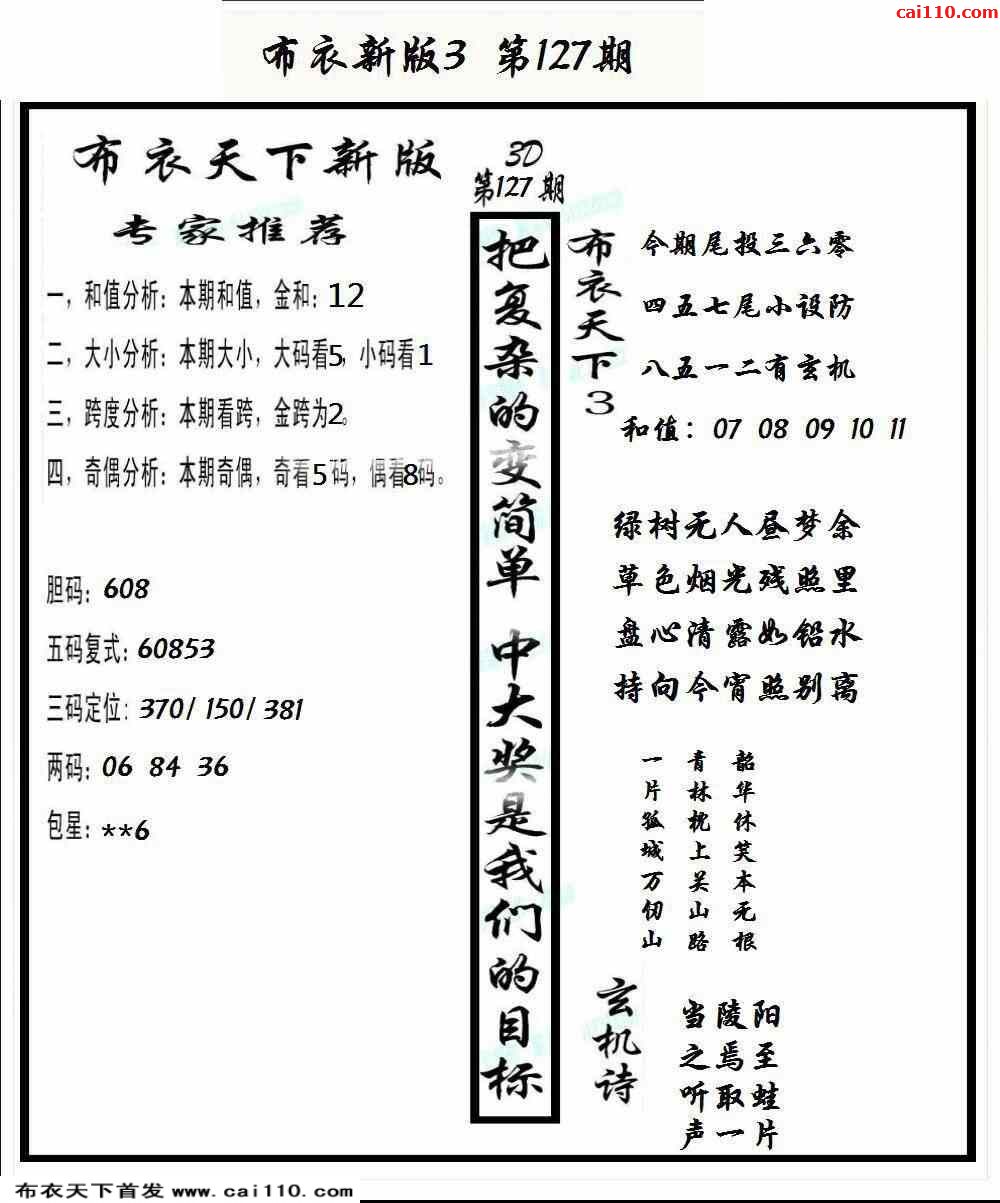 cai110.com
布衣新版3 第127期
布衣天下新版
专家推荐
一，和值分析：本期和值，金和：12
二，大小分析：本期大小，大码看5，小码看1
三，跨度分析：本期看跨，金跨为2。
四，奇偶分析：本期奇偶，奇看5码，偶看8码。
胆码：608
五码复式：60853
三码定位：370/150/381
两码：06 84 36
包星：**6
3D
第127期
把复杂的变简单 中大奖是我们的目标
布衣天下3
今期尾投三六零
四五七尾小设防
八五一二有玄机
和值：07 08 09 10 11
绿树无人昼梦余
草色烟光残照里
盘心清露如铅水
持向今宵照别离
韶华休笑本无根
青林枕上关山路
一片孤城万仞山
玄机诗
当陵阳
之焉至
听取蛙
声一片
布衣天下首发 www.cai110.com